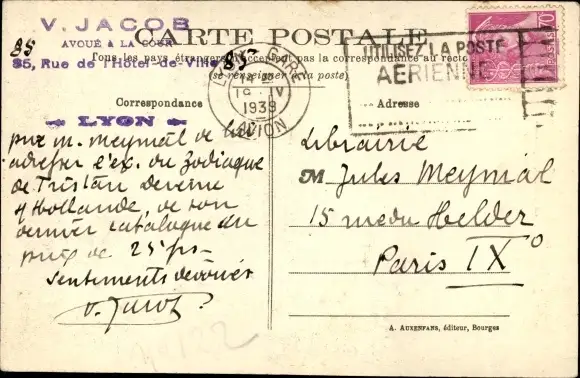 V. JACOB
AVOUÉ A LA COUR
85
85, Rue de l'Hôtel-de-Ville
LYON
CARTE POSTALE
Tous les pays étrangers n'acceptent pas la correspondance au recto
(se renseigner à la poste)
Correspondance
Adresse
GARE
1939
AVION
UTILISEZ LA POSTE
AÉRIENNE
70
prie M. Meymial de lui
adresser l'ex. du Zodiaque
de Tristan Dereme
de son
dernier catalogue du
prix de 25 frs
Sentiments dévoués
V. Jacob
Librairie
M Jules Meynial
15 rue du Helder
Paris IX°
A. AUXENFANS, éditeur, Bourges